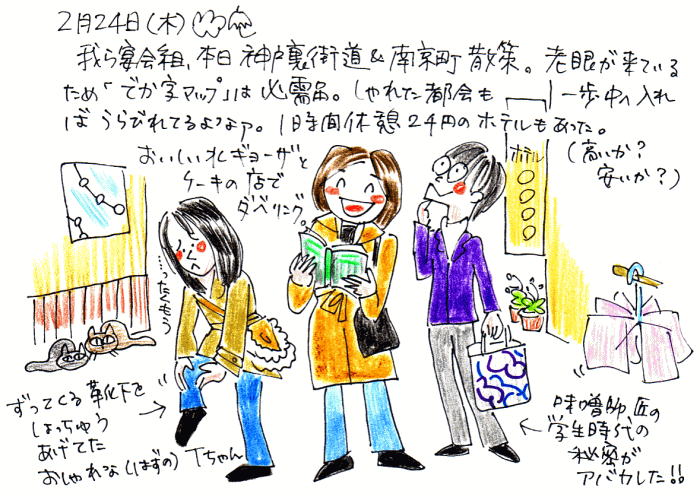 2月24日(木)
我ら宴会組、本日神戸裏街道&南京町散策。老眼が来ている
ため「でか字マップ」は必需品。しゃれた都会も一歩中へ入れ
ばうらびれてるよなァ。1時間休憩24円のホテルもあった。
(高いか?
安いか?)
おいしい水ギョーザと
ケーキの店で
ダベリング。
ホテル
〇
〇
〇
〇
…ったくもう
ずってくる靴下を
しょっちゅう
あげてた
おしゃれな(はずの)Tちゃん
味噌師匠の
学生時代の
秘密が
アバカレた!!